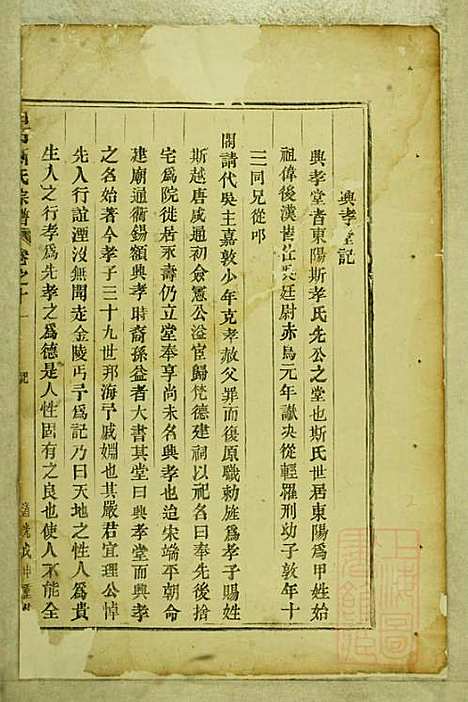 興孝堂記
興孝堂者東陽斯孝氏先公之堂也斯氏世居東陽爲甲姓始
祖傳後漢昔仕吳廷尉赤烏元年讞决從輕罹刑幼子敦年十
三同兄從叩
閽請代吳主嘉敦少年克孝赦父罪而復原職勅旌爲孝子賜姓
斯越唐咸通初僉憲公溢宦歸梵德建祠以祀名曰奉先後捨
宅爲院徙居永壽仍立堂奉享尚未名興孝也迨宋端平朝命
建廟通衢錫額興孝時裔孫益者大書其堂曰興孝堂而興孝
之名始著今孝子三十九世邦海子戚婣也其嚴君宜理公悼
先人行誼湮沒無聞走金陵丐予爲記乃曰天地之性人爲貴
生人之行孝爲先孝之爲德是人性固有之良也使人不能全
氏宗譜 卷之十一 記